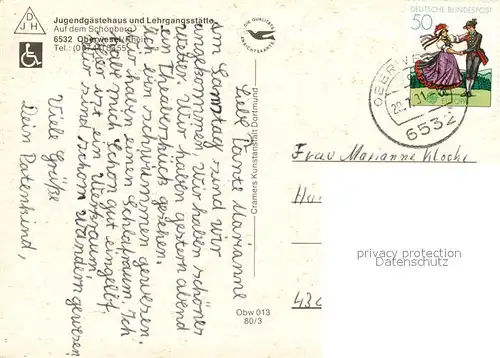 D
J H
Jugendgästehaus und Lehrgangsstätte
Auf dem Schönberg
6532 Oberwesel/Rhein
DIE QUALITÄTS
ANSICHTSKARTE
DEUTSCHE BUNDESPOST
50
EUROPA
6532
Liebe Tante Marianne
Am Samstag sind wir
angekommen. Wir haben schönes
Wetter. Wir haben gestern abend
ein Theaterstück gesehen.
Ich bin schwimmen gewesen.
Wir haben einen Schlafraum. Ich
habe mich schon gut eingelebt.
Hier ist ein Werkraum.
Wir sind schon wandern gewesen
Viele Grüße
Dein Patenkind,
Cramers Kunstanstalt Dortmund
Obw 013
80/3
Frau Marianne
privacy protection
Datenschutz